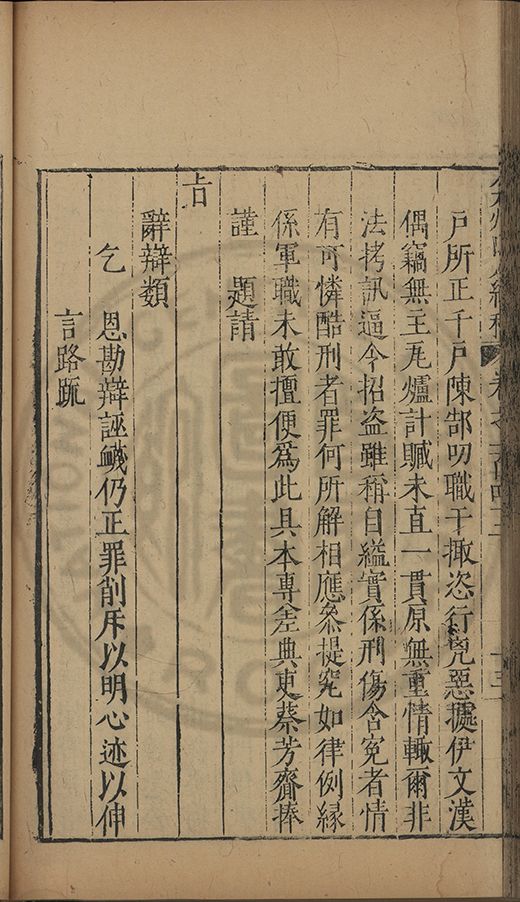 戶所正千戶陳郜叨職干掫恣行兇惡據伊文漢
偶竊無主瓦爐計贓未直一貫原無重情輙爾非
法拷訊逼令招盜雖稱自縊實係刑傷含冤者情
有可憐酷刑者罪何所解相應叅提究如律例緣
係軍職未敢擅便爲此具本專差典吏蔡芳齎捧
謹　題請
旨
辭辯類
乞　恩勘辯誣衊仍正罪削斥以明心迹以伸
言路疏